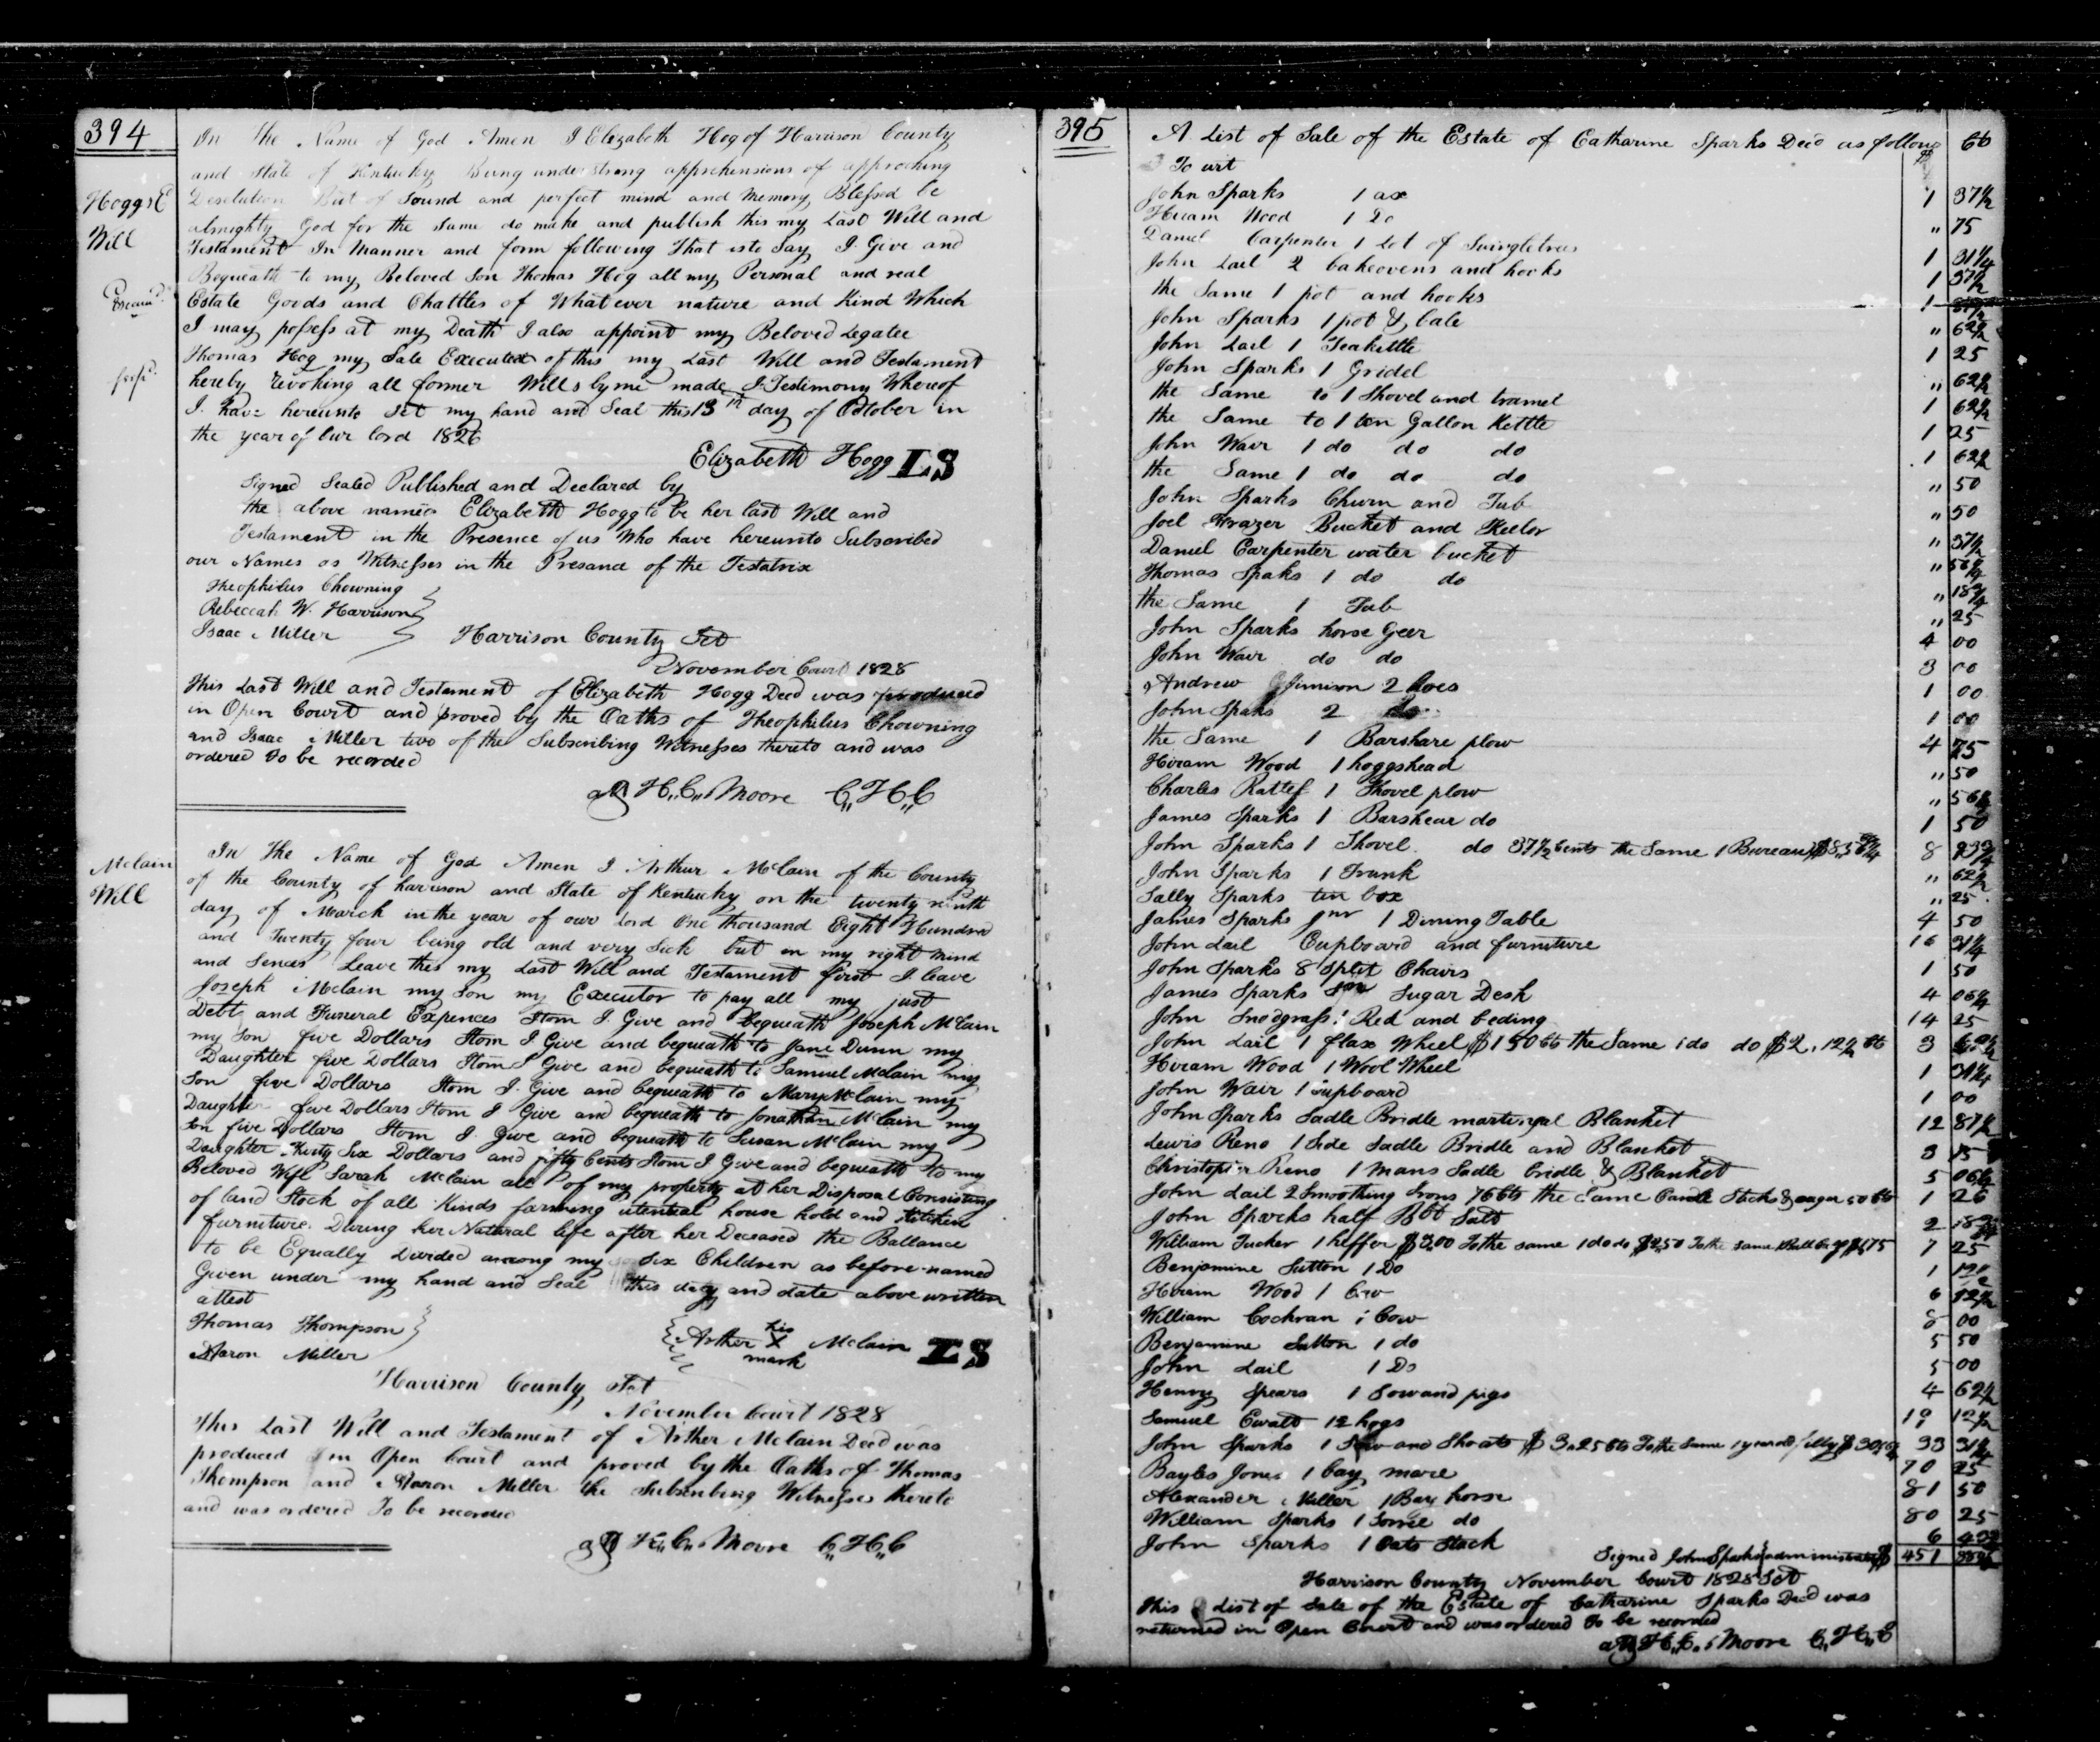 394
Hoggs E
Will
Examd.
In the Name of God Amen I Elizabeth Hog of Harrison County
and State of Kentucky Being under strong apprehensions of approching
Desolution But of Sound and perfect mind and Memory Blessed be
almighty God for the same do make and publish this my Last Will and
Testament In Manner and form following That is to Say I Give and
Bequeath to my Beloved Son Thomas Hog all my Personal and real
Estate Goods and Chattles of What ever nature and Kind Which
I may possess at my Death I also appoint my Beloved Legatee
Thomas Hog my Sale Executed of this my Last Will and Testament
hereby revoking all former Wills by me made In Testimony Whereof
I have hereunto Set my hand and Seal this 13th day of October in
the year of our lord 1826
Elizabeth Hogg LS
Signed Sealed Published and Declared by
the above named Elizabeth Hogg to be her last Will and
Testament in the Presence of us Who have hereunto Subscribed
our Names as Witnesses in the Presand of the Testatrix
Theophilus Chowning
Rebeccah W. Harrison
Isaac Miller
Harrison County Sct
November Court 1828
This Last Will and Testament of Elizabeth Hogg Decd was produced
in Open Court and proved by the Oaths of Theophilus Chowning
and Isaac Miller two of the Subscribing Witnesses thereto and was
ordered to be recorded
att H,,C,,Moore C,,H,,C
Mclain
Will
In the Name of God Amen I Arthur McLain of the County
of the County of harrison and State of Kentucky on the twenty ninth
day of March in the year of our Lord One thousand Eight Hundred
and Twenty four being old and very Sick but in my right mind
and Sences Leave this my Last Will and Testament first I leave
Joseph Mclain my Son my Executor to pay all my just
Debts and Funeral Expences Item I Give and bequeath Joseph McLain
my Son five Dollars Item I Give and bequeath to Jane Dunn my
Daughter five Dollars Item I Give and bequeath to Samuel Mclain my
Son five Dollars Item I Give and bequeath to Mary McLain my
Daughter five Dollars Item I Give and bequeath to Jonathan McLain my
Son five Dollars Item I Give and bequeath to Susan McLain my
Daughter thirty Six Dollars and fifty Cents Item I Give and bequeath to my
Beloved Wife Sarah Mclain all of my property at her Disposal Consisting
of land Stock of all Kinds farming utential house hold and Kitchen
furniture During her Natural life after her Deceased the Ballance
to be Equally Divided among my Six Children as before named
Given under my hand and Seal this day and date above written
attest
Thomas Thompson
Aaron Miller
Arther his X mark Mclain LS
Harrison County Sct
November Court 1828
This Last Will and Testament of Arther Mclain Decd was
produced in Open Court and proved by the Oaths of Thomas
Thompson and Aaron Miller the Subscribing Witnesses thereto
and was ordered To be recorded
att H,,C,,Moore C,,H,,C
395
A List of Sale of the Estate of Catharine Sparks Decd as follows $ Cts
To wit
John Sparks 1 ax 1 37½
Hiram Wood 1 Do ,, 75
Daniel Carpenter 1 Lot of Swingletrees 1 31¼
John Lail 2 bakeovens and hooks 1 37½
the Same 1 pot and hooks 1
John Sparks 1 pot & bale ,, 62½
John Lail 1 Teakittle 1 25
John Sparks 1 Gridel ,, 62½
the Same to 1 Shovel and tramel 1 62½
the Same to 1 ten Gallon Kettle 1 25
John Wair 1 do do do 1 62½
the Same 1 do do do ,, 50
John Sparks Churn and Tub ,, 50
Joel Frazer Bucket and Keelor ,, 37½
Daniel Carpenter water bucket ,, 56¼
Thomas Spaks 1 do do ,, 18¾
the Same 1 Tub ,, 25
John Sparks horse Geer 4 00
John Wair do do 3 00
Andrew Jimison 2 hoes 1 00
John Spaks 2 do 1 00
the Same 1 Barshare plow 4 75
Hiram Wood 1 hoggshead ,, 50
Charles Rattef 1 Shovel plow ,, 56¼
James Sparks 1 Barshear do 1 50
John Sparks 1 Shovel do 37½ Cents the Same 1 Bureau $8,,56¼ 8 93¾
John Sparks 1 Trunk ,, 62½
Sally Sparks tin box ,, 25
James Sparks Jnr 1 Dining Table 4 50
John Lail Cupboard and furniture 16 31¼
John Sparks 8 Split Chairs 1 50
James Sparks Snr Sugar Desk 4 06¼
John Snodgrass 1 Bed and beding 14 25
John Lail 1 flax Wheel $1 50 Cts the Same 1 do do $2,12½ Cts 3 62½
Hiram Wood 1 Wool Wheel 1 31¼
John Wair 1 Cupboard 1 00
John Sparks Sadle Bridle martingal Blanket 12 87½
Lewis Reno 1 Side Sadle Bridle and Blanket 3
Christopier Reno 1 mans Sadle bridle & Blanket 5 06¼
John Lail 2 Smoothing Irons 76 Cts the Same Candle Sticks & augar 50 Cts 1 26
John Sparks half Bbl Salt 2 18¾
William Tucker 1 heffer $3,00 To the same 1 do do $2,50 To the same 1 Bull $1,75 7 25
Benjamine Sutton 1 Do 1 12½
Hiram Wood 1 Cow 6 12½
William Cochran 1 Cow 8 00
Benjamine Sutton 1 do 5 50
John Lail 1 Do 5 00
Henry Spears 1 Sow and pigs 4 62½
Samuel Ewalt 12 hogs 12½
John Sparks 1 Sow and Shoats $3,25 Cts To the Same 1 year old filly $30,06¼ 33 31¼
Bayles Jones 1 bay mare 70 25
Alexander Miller 1 Bay horse 81 50
William Sparks 1 Sorrel do 80 25
John Sparks 1 Oats Stack 6
Signed John Sparks administrator $ 451
Harrison County November Court 1828 Sct
This List of Sale of the Estate of Catharine Sparks Decd was
returned in Open Court and was ordered to be recorded
att H,,C,,Moore C,,H,,C